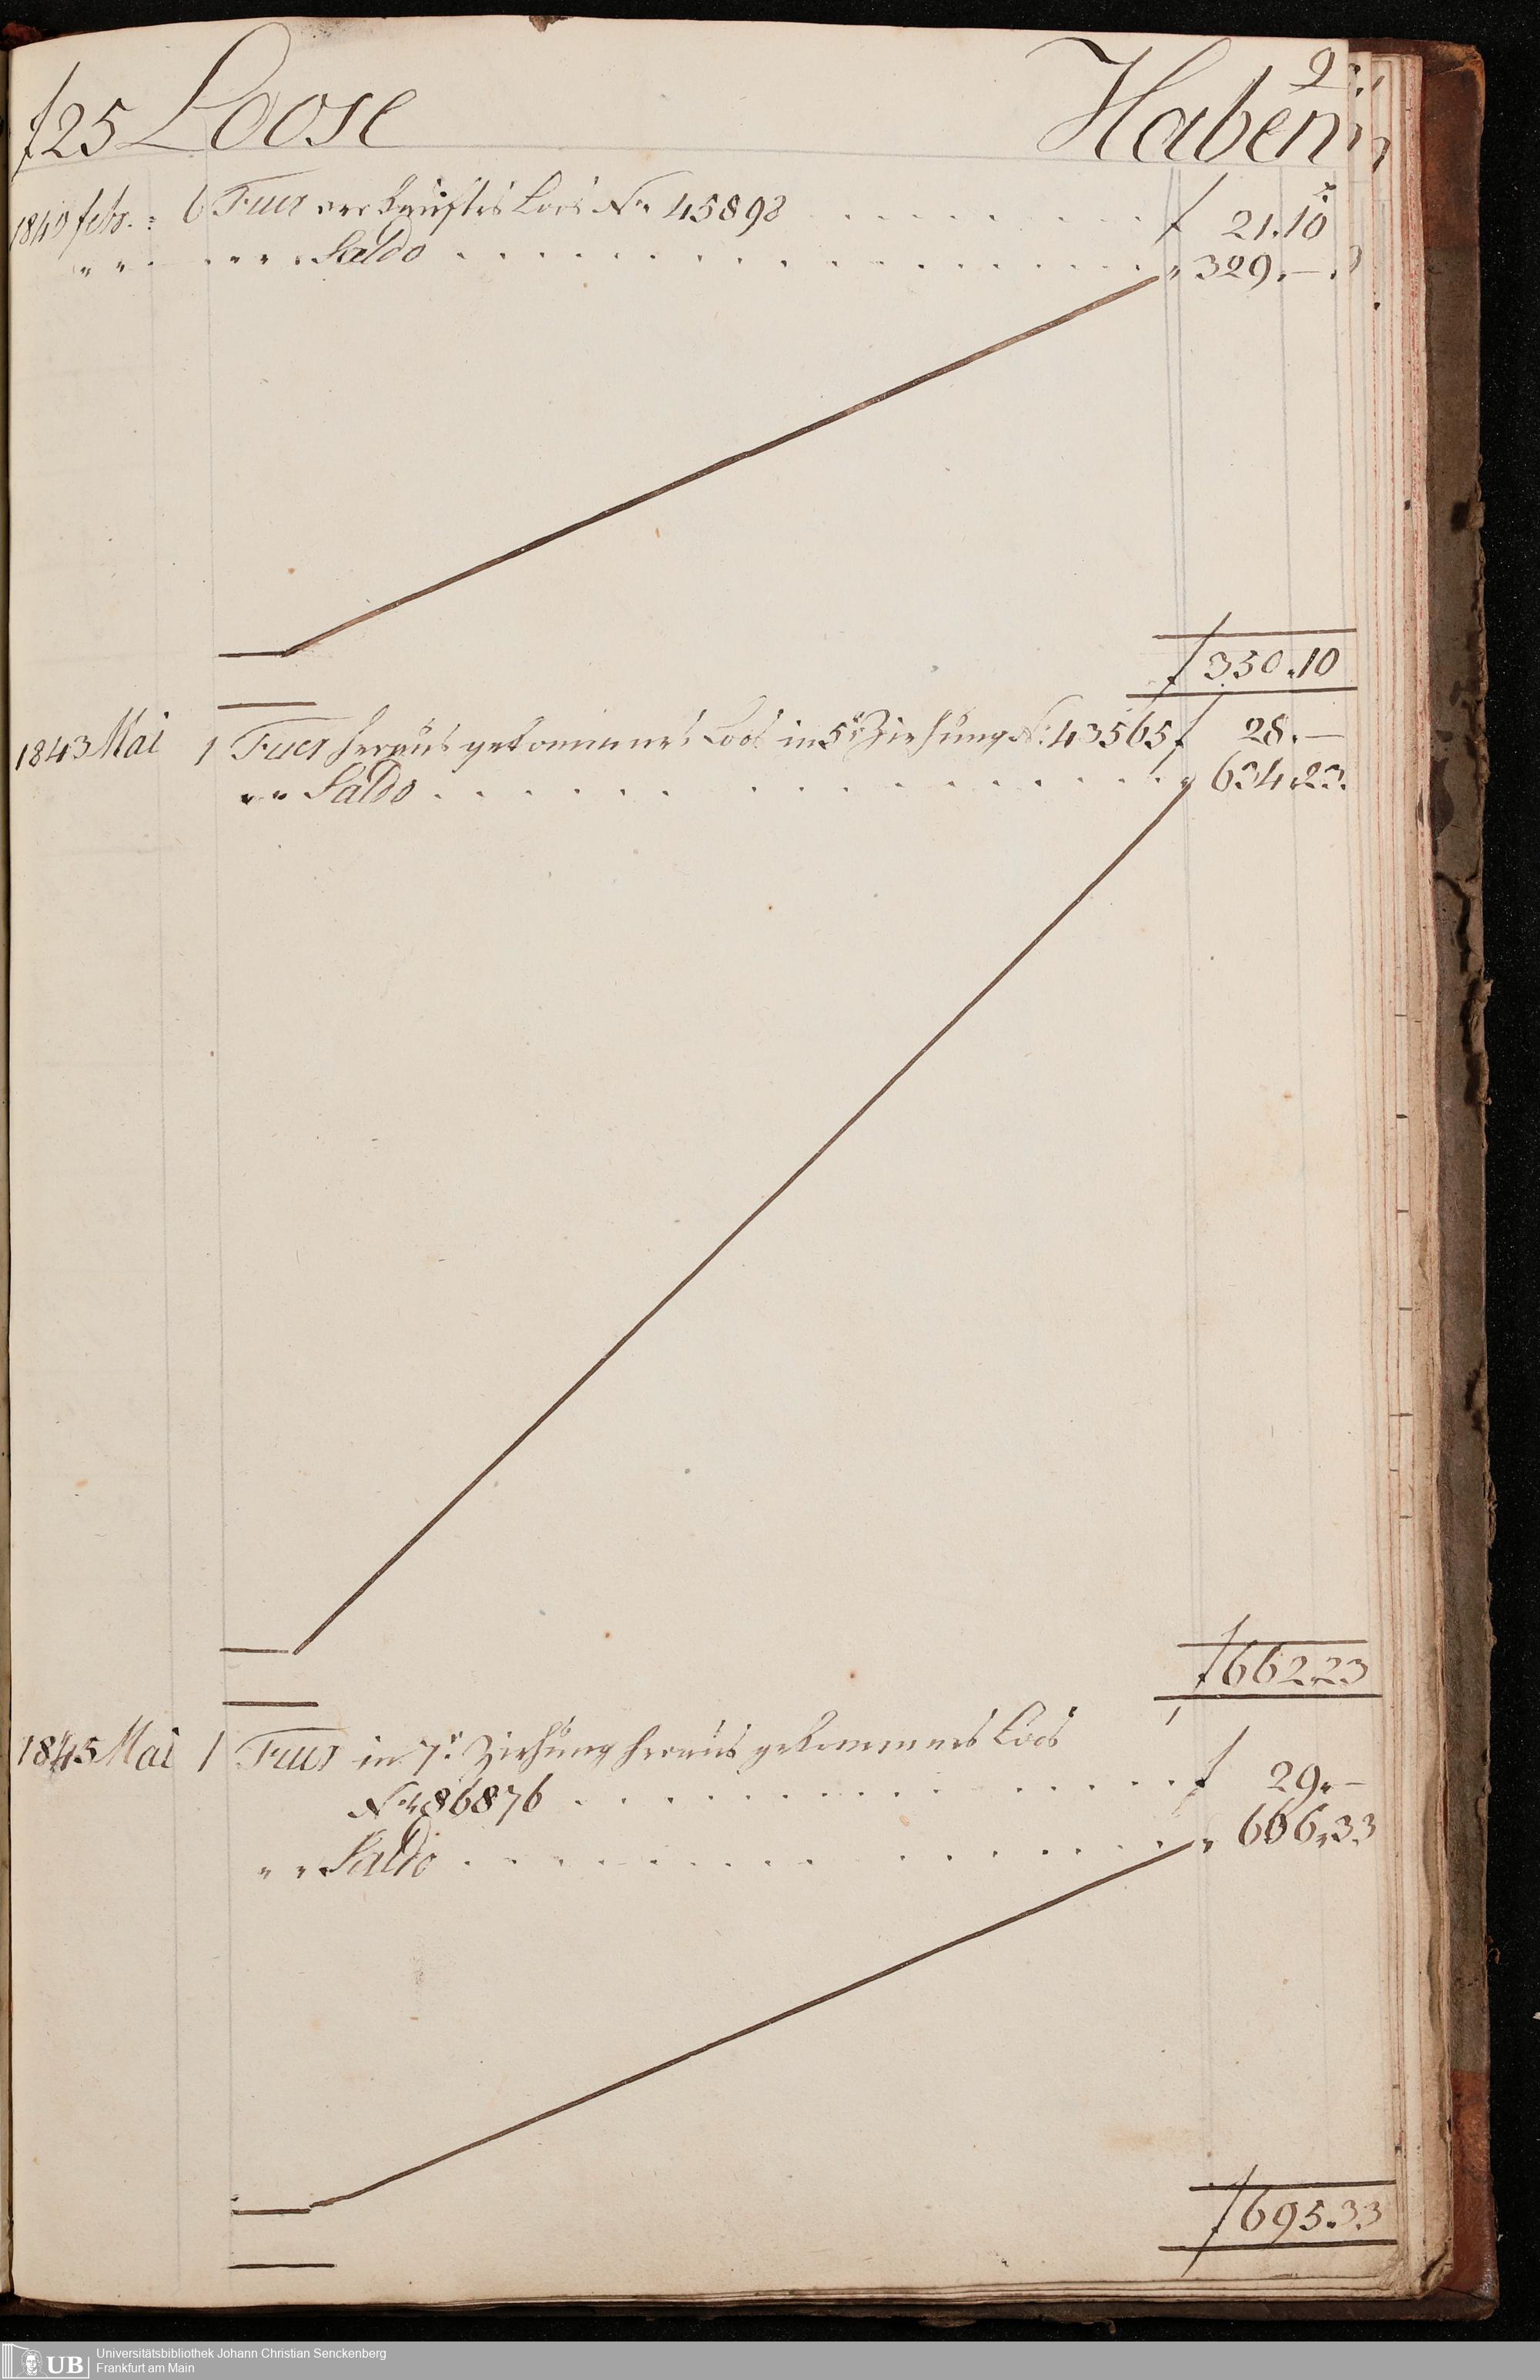 2
f25 Loose Haben
1840 febr. 6 Fuer verkauftes Loos No 45898 f 21.10
" " " " " Saldo " 329.—
f 350.10
1843 Mai 1 Fuer heraus gekommenes Loos in 5r Ziehung No 43565 f 28.—
" " Saldo " 634.23.
f 662.23
1845 Mai 1 Fuer in 7r Ziehung heraus gekommenes Loos
No 86876 f 29.—
" " Saldo " 666.33
f 695.33
Universitätsbibliothek Johann Christian Senckenberg
UB Frankfurt am Main